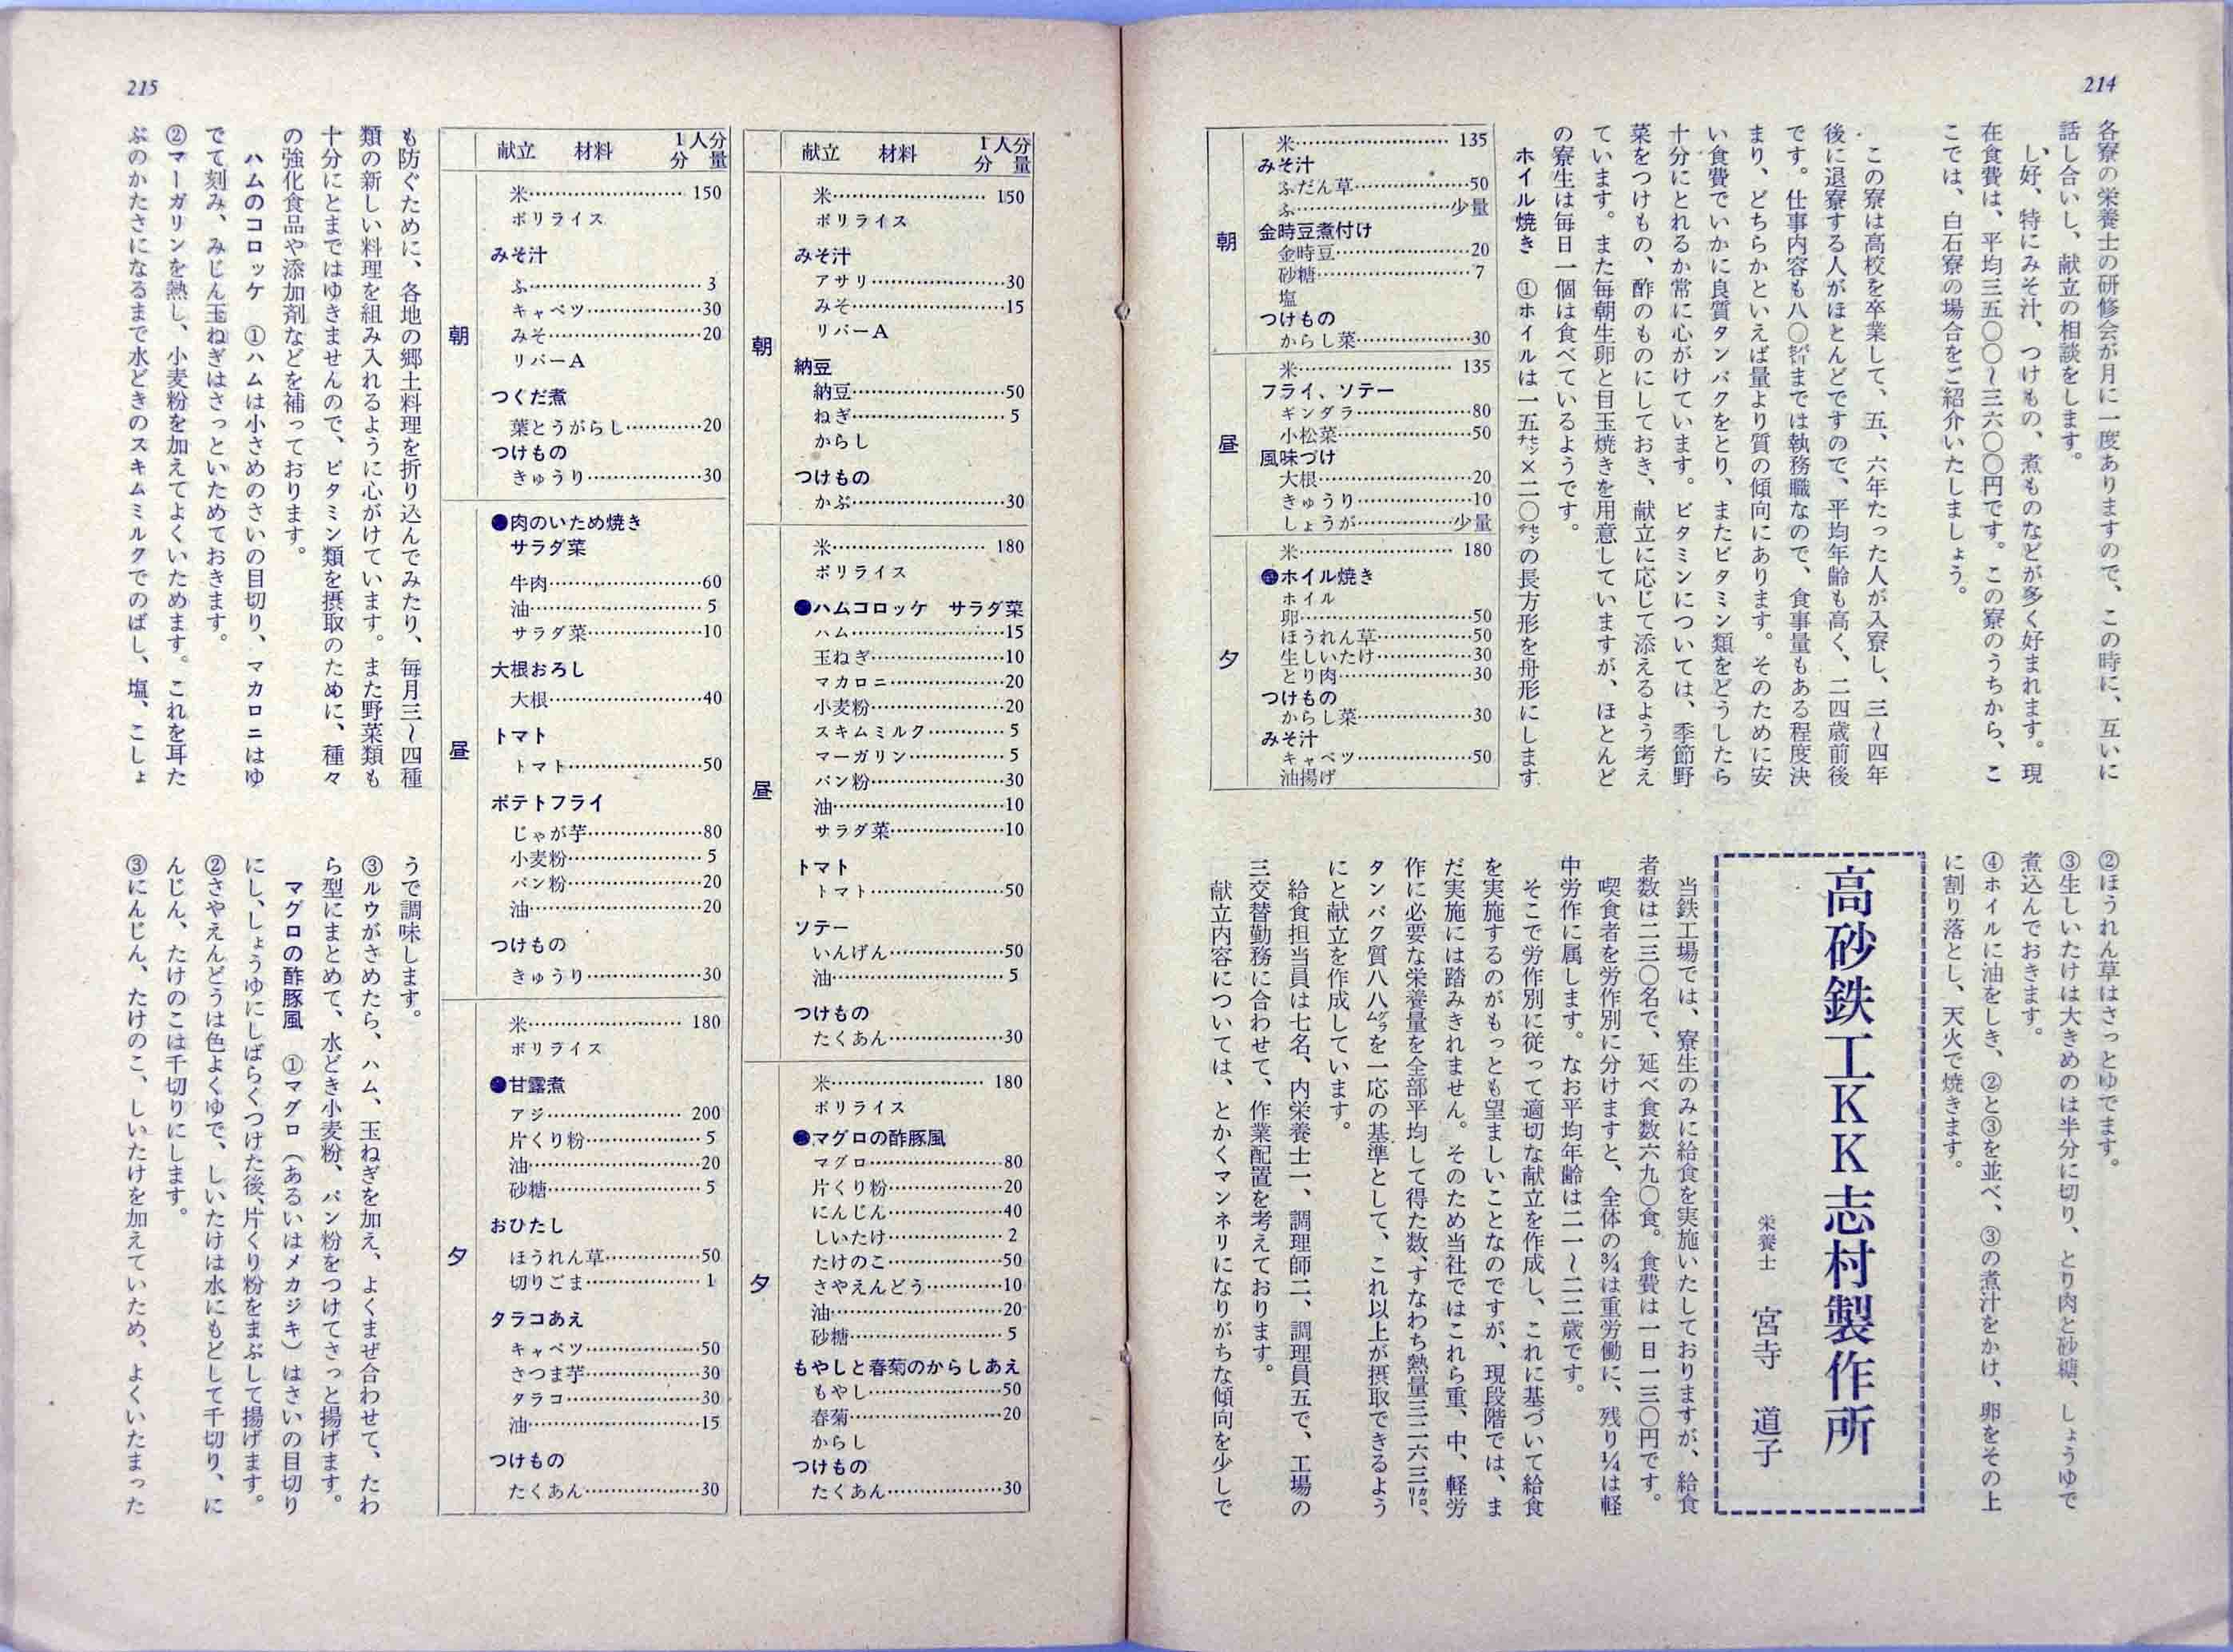 214
各寮の栄養士の研修会が月に一度ありますので、この時に、互いに
話し合いし、献立の相談をします。
し好、特にみそ汁、つけもの、煮ものなどが多く好まれます。現
在食費は、平均三五〇〇〜三六〇〇円です。この寮のうちから、こ
こでは、白石寮の場合をご紹介いたしましょう。
この寮は高校を卒業して、五、六年たった人が入寮し、三〜四年
後に退寮する人がほとんどですので、平均年齢も高く、二四歳前後
です。仕事内容も八〇㌫までは執務職なので、食事量もある程度決
まり、どちらかといえば量より質の傾向にあります。そのために安
い食費でいかに良質タンパクをとり、またビタミン類をどうしたら
十分にとれるか常に心がけています。ビタミンについては、季節野
菜をつけもの、酢のものにしておき、献立に応じて添えるよう考え
ています。また毎朝生卵と目玉焼きを用意していますが、ほとんど
の寮生は毎日一個は食べているようです。
ホイル焼き ①ホイルは一五㌢×二〇㌢の長方形を舟形にします
朝
米 135
みそ汁
ふだん草 50
ふ 少量
金時豆煮付け
金時豆 20
砂糖 7
塩
つけもの
からし菜 30
昼
米 135
フライ、ソテー
ギンダラ 80
小松菜 50
風味づけ
大根 20
きゅうり 10
しょうが 少量
夕
米 180
●ホイル焼き
ホイル
卵 50
ほうれん草 50
生しいたけ 30
とり肉 30
つけもの
からし菜 30
みそ汁
キャベツ 50
油揚げ
②ほうれん草はさっとゆでます。
③生しいたけは大きめのは半分に切り、とり肉と砂糖、しょうゆで
煮込んでおきます。
④ホイルに油をしき、②と③を並べ、③の煮汁をかけ、卵をその上
に割り落とし、天火で焼きます。
高砂鉄工KK志村製作所
栄養士 宮寺 道子
当鉄工場では、寮生のみに給食を実施いたしておりますが、給食
者数は二三〇名で、延べ食数六九〇食。食費は一日一三〇円です。
喫食者を労作別に分けますと、全体の¾は重労働に、残り¼は軽
中労作に属します。なお平均年齢は二一〜二二歳です。
そこで労作別に従って適切な献立を作成し、これに基づいて給食
を実施するのがもっとも望ましいことなのですが、現段階では、ま
だ実施には踏みきれません。そのため当社ではこれら重、中、軽労
作に必要な栄養量を全部平均して得た数、すなわち熱量三一六三㌍、
タンパク質八八㌘を一応の基準として、これ以上が摂取できるよう
にと献立を作成しています。
給食担当員は七名、内栄養士一、調理師二、調理員五で、工場の
三交替勤務に合わせて、作業配置を考えております。
献立内容については、とかくマンネリになりがちな傾向を少しで
215
献立 材料 1人分分量
朝
米 150
ポリライス
みそ汁
アサリ 30
みそ 15
リバーA
納豆
納豆 50
ねぎ 5
からし
つけもの
かぶ 30
昼
米 180
ポリライス
●ハムコロッケ サラダ菜
ハム 15
玉ねぎ 10
マカロニ 20
小麦粉 20
スキムミルク 5
マーガリン 5
パン粉 30
油 10
サラダ菜 10
トマト
トマト 50
ソテー
いんげん 50
油 5
つけもの
たくあん 30
夕
米 180
ポリライス
●マグロの酢豚風
マグロ 80
片くり粉 20
にんじん 40
しいたけ 2
たけのこ 50
さやえんどう 10
油 20
砂糖 5
もやしと春菊のからしあえ
もやし 50
春菊 20
からし
つけもの
たくあん 30
献立 材料 1人分分量
朝
米 150
ポリライス
みそ汁
ふ 3
キャベツ 30
みそ 20
リバーA
つくだ煮
葉とうがらし 20
つけもの
きゅうり 30
昼
●肉のいため焼き
サラダ菜
牛肉 60
油 5
サラダ菜 10
大根おろし
大根 40
トマト
トマト 50
ポテトフライ
じゃが芋 80
小麦粉 5
パン粉 20
油 20
つけもの
きゅうり 30
夕
米 180
ポリライス
●甘露煮
アジ 200
片くり粉 5
油 20
砂糖 5
おひたし
ほうれん草 50
切りごま 1
タラコあえ
キャベツ 50
さつま芋 30
タラコ 30
油 15
つけもの
たくあん 30
も防ぐために、各地の郷土料理を折り込んでみたり、毎月三〜四種
類の新しい料理を組み入れるように心がけています。また野菜類も
十分にとまではゆきませんので、ビタミン類を摂取のために、種々
の強化食品や添加剤などを補っております。
ハムのコロッケ ①ハムは小さめのさいの目切り、マカロニはゆ
でて刻み、みじん玉ねぎはさっといためておきます。
②マーガリンを熱し、小麦粉を加えてよくいためます。これを耳た
ぶのかたさになるまで水どきのスキムミルクでのばし、塩、こしょ
うで調味します。
③ルウがさめたら、ハム、玉ねぎを加え、よくまぜ合わせて、たわ
ら型にまとめて、水どき小麦粉、パン粉をつけてさっと揚げます。
マグロの酢豚風 ①マグロ（あるいはメカジキ）はさいの目切り
にし、しょうゆにしばらくつけた後、片くり粉をまぶして揚げます。
②さやえんどうは色よくゆで、しいたけは水にもどして千切り、に
んじん、たけのこは千切りにします。
③にんじん、たけのこ、しいたけを加えていため、よくいたまった